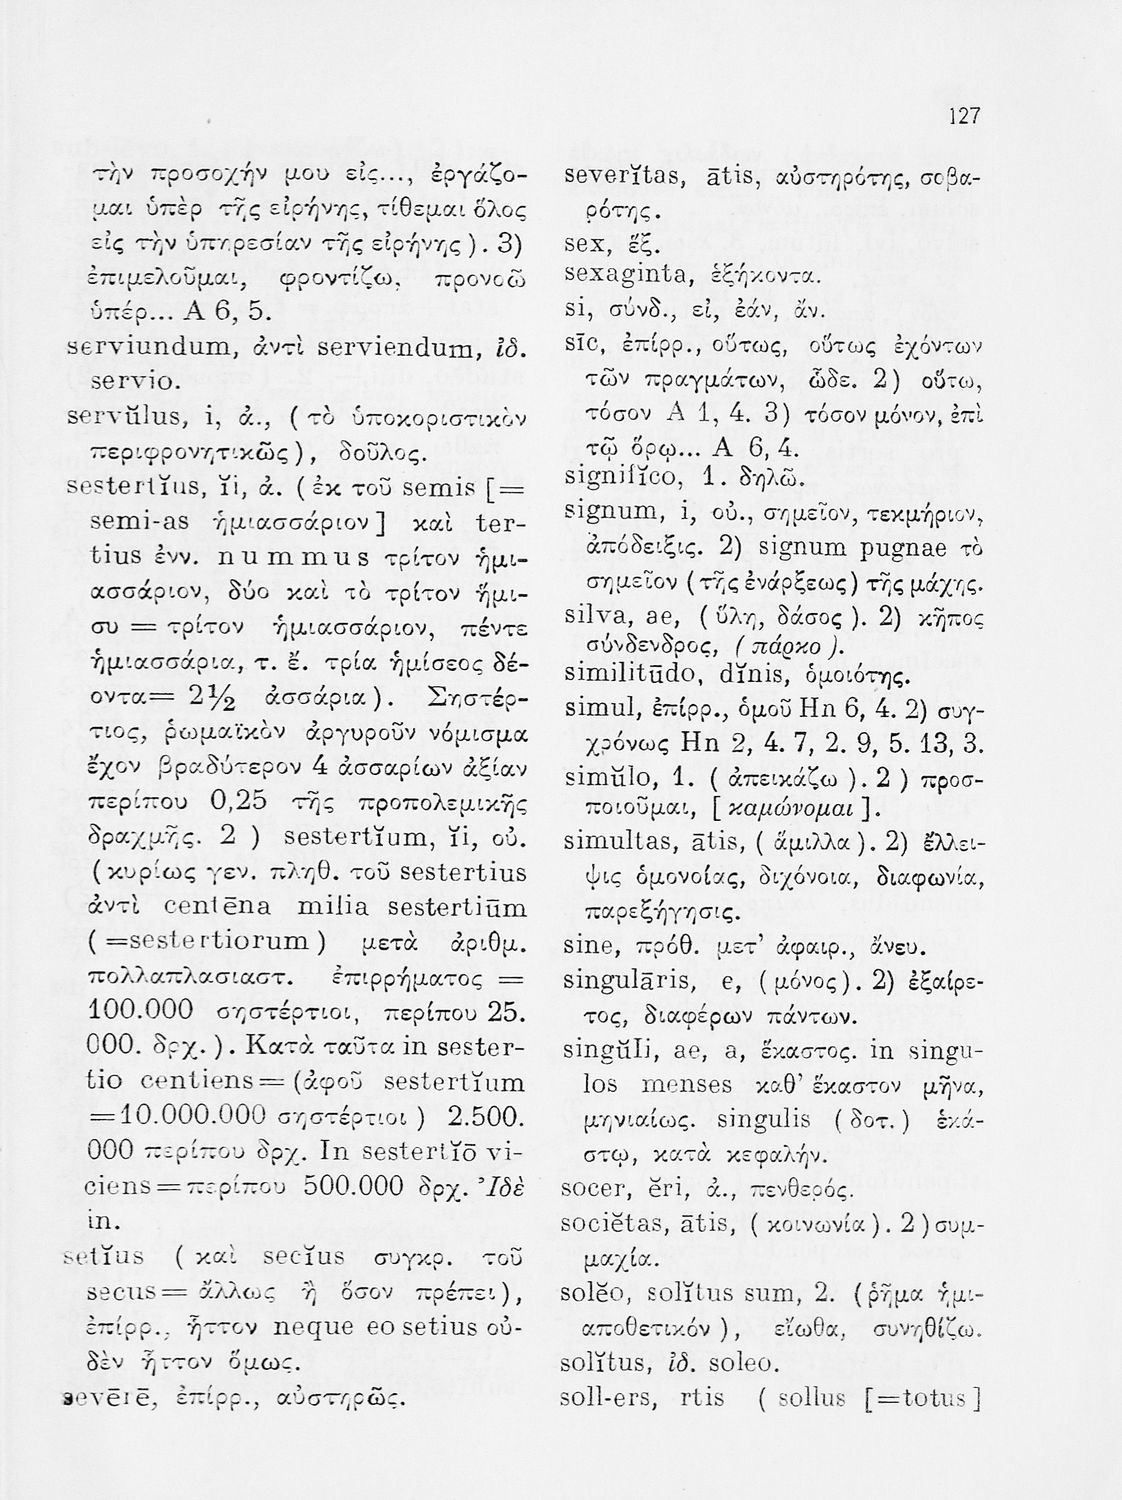 127
τὴν προσοχήν μου εἰς..., ἐργάζο-
μαι ὑπὲρ τῆς εἰρήνης, τίθεμαι ὅλος
εἰς τὴν ὑπηρεσίαν τῆς εἰρήνης ). 3)
ἐπιμελοῦμαι, φροντίζω, προνοῶ
ὑπέρ... A 6, 5.
serviundum, ἀντὶ serviendum, ἰδ.
servio.
servŭlus, i, ἀ., ( τὸ ὑποκοριστικὸν
περιφρονητικῶς ), δοῦλος.
sestertĭus, ĭi, ἀ. ( ἐκ τοῦ semis [=
semi-as ἡμιασσάριον ] καὶ ter-
tius ἐνν. nummus τρίτον ἡμι-
ασσάριον, δύο καὶ τὸ τρίτον ἥμι-
συ = τρίτον ἡμιασσάριον, πέντε
ἡμιασσάρια, τ. ἔ. τρία ἡμίσεος δέ-
οντα= 2½ ἀσσάρια ). Σηστέρ-
τιος, ῥωμαϊκὸν ἀργυροῦν νόμισμα
ἔχον βραδύτερον 4 ἀσσαρίων ἀξίαν
περίπου 0,25 τῆς προπολεμικῆς
δραχμῆς. 2 ) sestertĭum, ĭi, οὐ.
( κυρίως γεν. πληθ. τοῦ sestertius
ἀντὶ centēna milia sestertiūm
( =sestertiorum ) μετὰ ἀριθμ.
πολλαπλασιαστ. ἐπιρρήματος =
100.000 σηστέρτιοι, περίπου 25.
000. δρχ. ). Κατὰ ταῦτα in sester-
tio centiens = (ἀφοῦ sestertĭum
=10.000.000 σηστέρτιοι ) 2.500.
000 περίπου δρχ. In sestertĭō vi-
ciens = περίπου 500.000 δρχ. Ἰδὲ
in.
setĭus ( καὶ secĭus συγκρ. τοῦ
secus= ἄλλως ἢ ὅσον πρέπει ),
ἐπίρρ., ἧττον neque eo setius οὐ-
δὲν ἧττον ὅμως.
sevērē, ἐπίρρ., αὐστηρῶς.
severĭtas, ātis, αὐστηρότης, σοβα-
ρότης.
sex, ἕξ.
sexaginta, ἑξήκοντα.
si, σύνδ., εἰ, ἐάν, ἄν.
sīc, ἐπίρρ., οὕτως, οὕτως ἐχόντων
τῶν πραγμάτων, ὧδε. 2) οὕτω,
τόσον A 1, 4. 3) τόσον μόνον, ἐπὶ
τῷ ὅρῳ... A 6, 4.
signifĭco, 1. δηλῶ.
signum, i, οὐ., σημεῖον, τεκμήριον,
ἀπόδειξις. 2) signum pugnae τὸ
σημεῖον ( τῆς ἐνάρξεως ) τῆς μάχης.
silva, ae, ( ὕλη, δάσος ). 2) κῆπος
σύνδενδρος, ( πάρκο ).
similitūdo, dĭnis, ὁμοιότης.
simul, ἐπίρρ., ὁμοῦ Hn 6, 4. 2) συγ-
χρόνως Hn 2, 4. 7, 2. 9, 5. 13, 3.
simŭlo, 1. ( ἀπεικάζω ). 2 ) προσ-
ποιοῦμαι, [ καμώνομαι ].
simultas, ātis, ( ἅμιλλα ). 2) ἔλλει-
ψις ὁμονοίας, διχόνοια, διαφωνία,
παρεξήγησις.
sine, πρόθ. μετ’ ἀφαιρ., ἄνευ.
singulāris, e, ( μόνος ). 2) ἐξαίρε-
τος, διαφέρων πάντων.
singŭli, ae, a, ἕκαστος. in singu-
los menses καθ’ ἕκαστον μῆνα,
μηνιαίως. singulis ( δοτ. ) ἑκά-
στῳ, κατὰ κεφαλήν.
socer, ĕri, ἀ., πενθερός.
sociĕtas, ātis, ( κοινωνία ). 2 ) συμ-
μαχία.
solĕo, solĭtus sum, 2. (ῥῆμα ἡμι-
αποθετικόν ), εἴωθα, συνηθίζω.
solĭtus, ἰδ. soleo.
soll-ers, rtis ( sollus [=totus ]